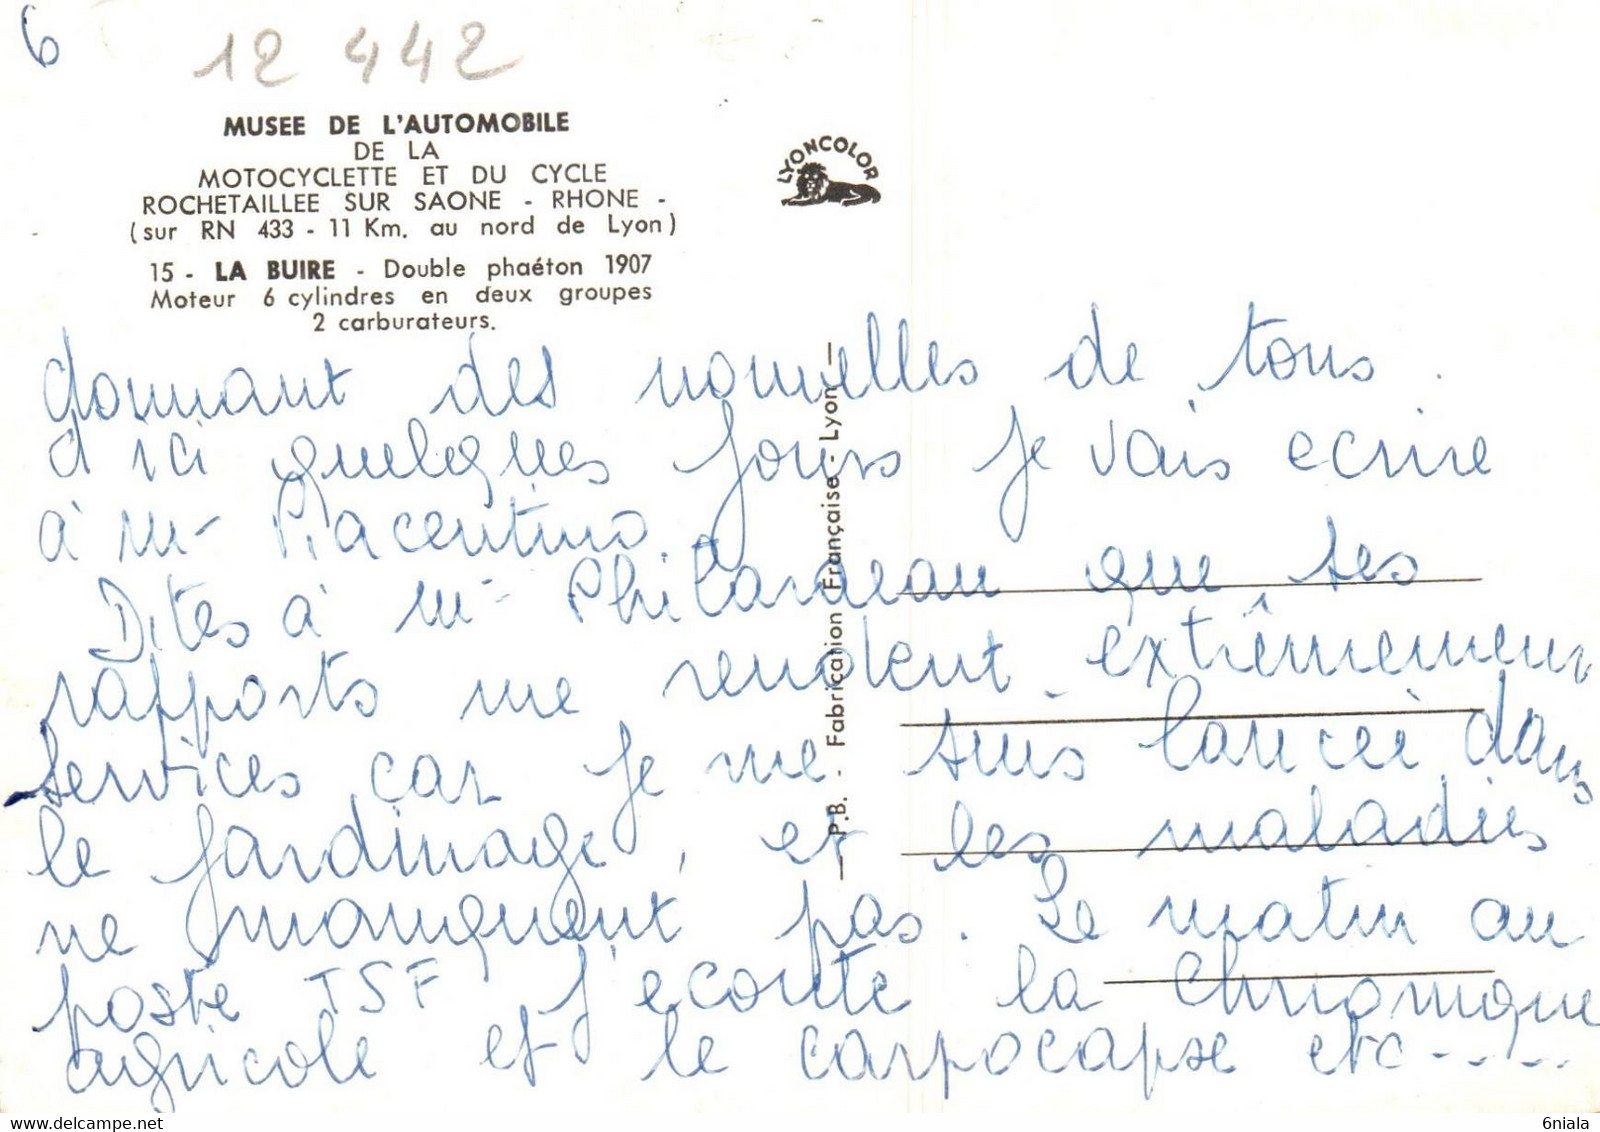 6
12 442
MUSEE DE L'AUTOMOBILE
DE LA
MOTOCYCLETTE ET DU CYCLE
ROCHETAILLEE SUR SAONE - RHONE -
(sur RN 433 - 11 Km. au nord de Lyon)
15 - LA BUIRE - Double phaéton 1907
Moteur 6 cylindres en deux groupes
2 carburateurs.
LYONCOLOR
— P.B. - Fabrication Française - Lyon —
donnant des nouvelles de tous.
d'ici quelques jours je vais ecrire
à Mr Piacentino.
Dites à Mr Philardeau que ses
rapports me rendent extrêmement
services car je me suis lancée dans
le jardinage, et les maladies
ne manquent pas. Le matin au
poste TSF j'ecoute la chronique
agricole et le carpocapse etc - - - -
delcampe.net
6niala